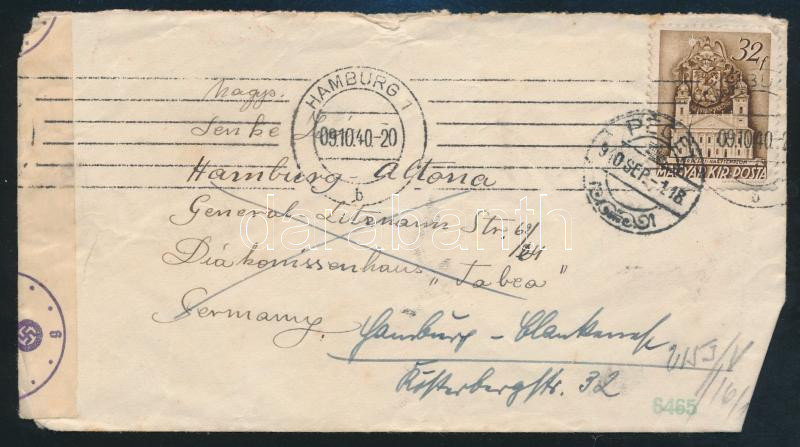 32f
HAMBURG 1
09.10.40.-20
b
09.10.40.-2
b
PÉCS
940 SEP
18
MAGYAR KIR. POSTA
Nagys.
Lenke
Hamburg - Altona
General Litzmann Str. 69/
Diakonissenhaus "Tabea"
Germany
Hamburg - Blankenese
Kösterbergstr. 32
6465
6
darabanth